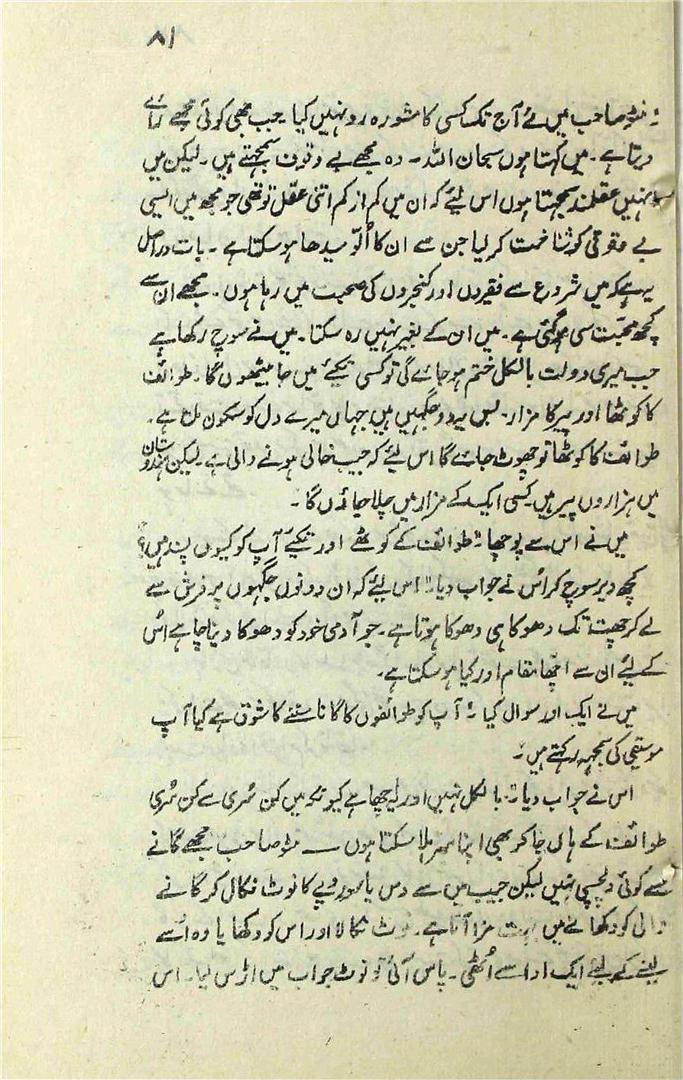 ۸۱
"منٹو صاحب میں نے آج تک کسی کا مشورہ رد نہیں کیا۔ جب بھی کوئی مجھے رائے
دیتا ہے۔ میں کہتا ہوں سبحان اللہ۔ وہ مجھے بے وقوف سمجھتے ہیں۔ لیکن میں
انہیں عقلمند سمجھتا ہوں اس لیئے کہ ان میں کم از کم اتنی عقل تو تھی جو مجھ میں ایسی
بے وقوفی کو شناخت کر لیا جن سے ان کا اُلّو سیدھا ہو سکتا ہے۔ بات دراصل
یہ ہے کہ میں شروع سے فقیروں اور کنجروں کی صحبت میں رہا ہوں۔ مجھے ان سے
کچھ محبّت سی ہو گئی ہے۔ میں ان کے بغیر نہیں رہ سکتا۔ میں نے سوچ رکھا ہے
جب میری دولت بالکل ختم ہو جائے گی تو کسی تکیے میں جا بیٹھوں گا۔ طوائف
کا کوٹھا اور پیر کا مزار۔ بس یہ دو جگہیں ہیں جہاں میرے دل کو سکون ملتا ہے۔
طوائف کا کوٹھا تو چھوٹ جائے گا اس لیئے کہ جیب خالی ہونے والی ہے۔ لیکن ہندوستان
میں ہزاروں پیر ہیں۔ کسی ایک کے مزار میں چلا جاؤں گا۔
میں نے اس سے پوچھا "طوائف کے کوٹھے اور تکیے آپ کو کیوں پسند ہیں؟
کچھ دیر سوچ کر اُس نے جواب دیا" اس لیئے کہ ان دونوں جگہوں پر فرش سے
لے کر چھت تک دھوکا ہی دھوکا ہوتا ہے۔ جو آدمی خود کو دھوکا دینا چاہے اُس
کے لیئے ان سے اچھا مقام اور کیا ہو سکتا ہے۔
میں نے ایک اور سوال کیا " آپ کو طوائفوں کا گانا سننے کا شوق ہے کیا آپ
موسیقی کی سمجھ رکھتے ہیں"۔
اس نے جواب دیا "بالکل نہیں اور یہ اچھا ہے کیونکہ میں کن سُری سے کن سُری
طوائف کے ہاں جا کر بھی اپنا سر ہلا سکتا ہوں — منٹو صاحب مجھے گانے
سے کوئی دلچسپی نہیں لیکن جیب میں سے دس یا سو روپے کا نوٹ نکال کر گانے
والی کو دکھانے میں بہت مزا آتا ہے۔ نوٹ نکالا اور اس کو دکھایا وہ اُسے
لینے کے لیئے ایک ادا سے اُٹھی۔ پاس آئی تو نوٹ جراب میں اڑس لیا۔ اس